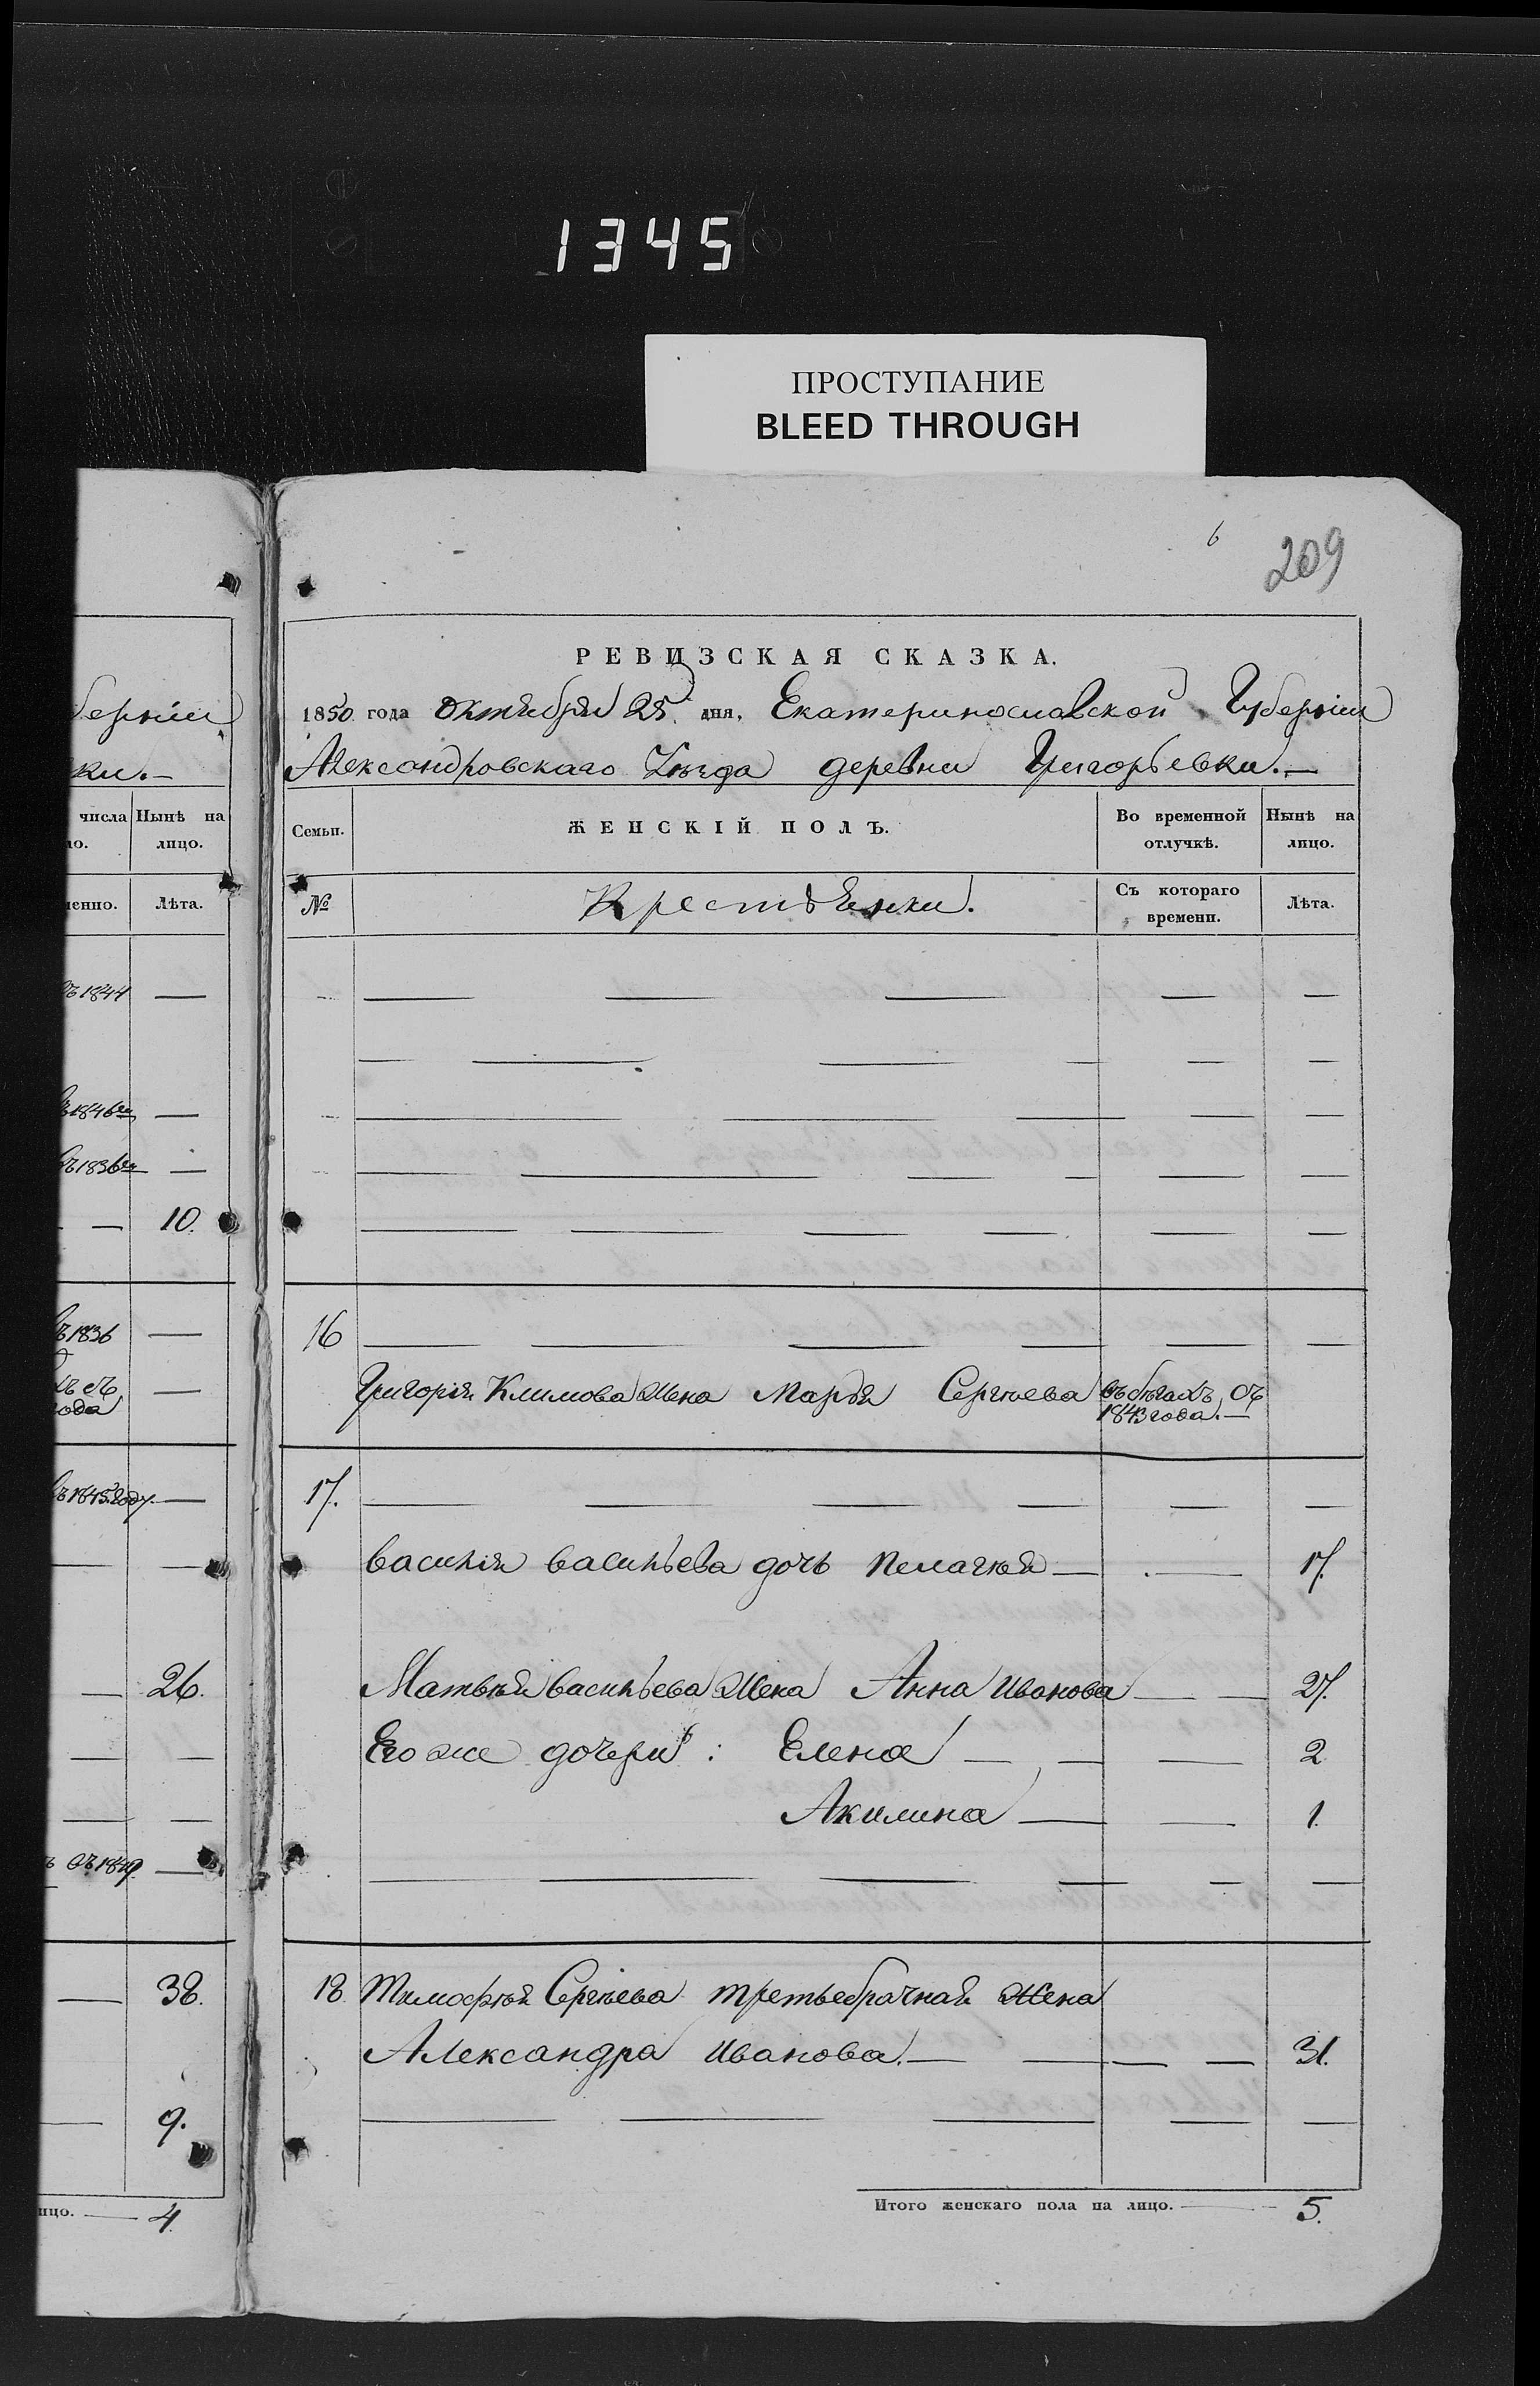 1345
ПРОСТУПАНИЕ
BLEED THROUGH
6
209
берніи
ки.—
числа Нынѣ на
ло. лицо.
менно. Лѣта.
1844 —
1846 —
1836 —
— 10.
1836 —
съ —
года
1845 году. —
— —
— 26.
— —
— —
съ 1849. —
— 38.
— 9.
лицо. — 4.
РЕВИЗСКАЯ СКАЗКА.
1850 года Октября 25 дня, Екатеринославской Губерніи
Александровскаго Уѣзда деревни Григорьевки.—
Семьи. ЖЕНСКІЙ ПОЛЪ. Во временной отлучкѣ. Нынѣ на лицо.
№ Крестьянки. Съ котораго времени. Лѣта.
16 — — — — — —
Григорія Климова жена Марья Сергѣева въ бѣгахъ съ
1843 года.—
17. — — — — — —
Василія Васильева дочь Пелагѣя — — 17.
Матвѣя Васильева жена Анна Иванова — — 27.
Его же дочери: Елена — — — 2
Акилина — — 1.
18. Тимофѣя Сергѣева третьебрачная жена
Александра Иванова.— — — — 31.
Итого женскаго пола на лицо. — 5.